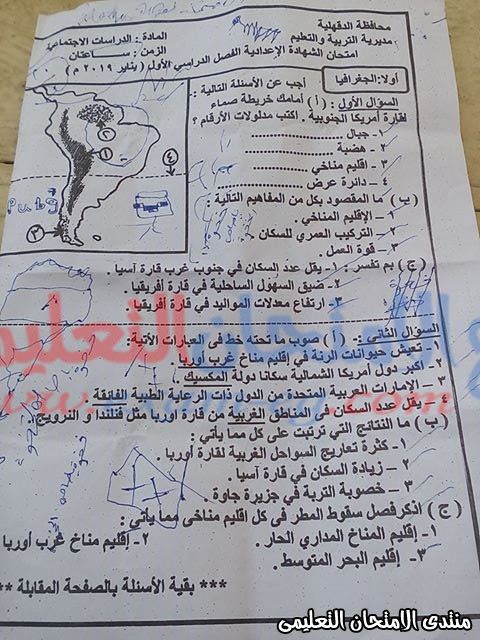 محافظة الدقهلية
مديرية التربية والتعليم
المادة : الدراسات الاجتماعي
الزمن : ساعتان
امتحان الشهادة الإعدادية الفصل الدراسي الأول ( يناير ٢٠١٩ م )
أولا: الجغرافيا
أجب عن الأسئلة التالية :
السؤال الأول : ( أ ) أمامك خريطة صماء
لقارة أمريكا الجنوبية . اكتب مدلولات الأرقام ؟
١- جبال ......................
٢- هضبة ......................
٣- إقليم مناخي ......................
٤- دائرة عرض ......................
( ب ) ما المقصود بكل من المفاهيم التالية :
١ - الإقليم المناخي .
٢ - التركيب العمري للسكان
٣ - قوة العمل .
( ج ) بم تفسر : ١- يقل عدد السكان في جنوب غرب قارة آسيا .
٢ - ضيق السهول الساحلية في قارة أفريقيا .
٣ - ارتفاع معدلات المواليد في قارة أفريقيا
السؤال الثاني :- ( أ ) صوب ما تحته خط فى العبارات الأتية:
١- تعيش حيوانات الرنة في إقليم مناخ غرب أوربا .
٢ - أكبر دول أمريكا الشمالية سكانا دولة المكسيك .
٣ - الإمارات العربية المتحدة من الدول ذات الرعاية الطبية الفائقة
٤ - يقل عدد السكان في المناطق الغربية من قارة أوربا مثل فنلندا و النرويج .
( ب ) ما النتائج التي ترتبت على كل مما يأتي :
١ - كثرة تعاريج السواحل الغربية لقارة أوربا .
٢ - زيادة السكان في قارة آسيا .
٣ - خصوبة التربة في جزيرة جاوة
( ج ) اذكر فصل سقوط المطر فى كل اقليم مناخى مما يأتي :
١ - إقليم المناخ المداري الحار . ٢- إقليم مناخ غرب أوربا
٣- إقليم البحر المتوسط .
*** بقية الأسئلة بالصفحة المقابلة **
منتدى الامتحان التعليمى